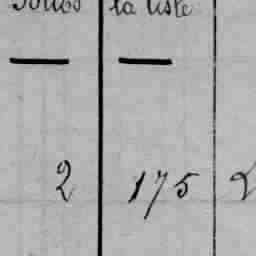 la liste
2 175